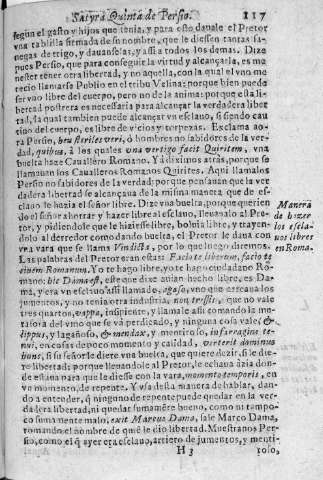 Satyra Quinta de Persio. 117
segun el gasto y hijos que tenia, y para esto dauale el Pretor
vna tablilla firmada de su nombre, que le diessen tantas ha-
negas de trigo, y dauanselas, y assi a todos los demas. Dize
pues Persio, que para conseguir la virtud y alcançarla, es me
nester tener otra libertad, y no aquella, con la qual el vno me
recio llamarse Publio en el tribu Velina: porque bien puede
ser vno libre del cuerpo, pero no de la anima: porque la li-
bertad postrera es necessaria para alcançar la verdadera liber
tad, la qual tambien puede alcançar vn esclauo, si siendo cau
tiuo del cuerpo, es libre de vicios y torpezas. Exclama ao-
ra Persio, heu steriles veri, ò hombres no sabidores de la ver-
dad, quibus, à los quales vna vertigo facit Quiritem, vna
buelta haze Cauallero Romano. Ya diximos atras, porque se
llamauan los Caualleros Romanos Quirites. Aqui llamalos
Persio no sabidores de la verdad: porque pensauan que la ver
dadera libertad se alcançaua de la misma manera que de es-
clauo le hazia el señor libre. Dize vna buelta, porque querien
do el señor ahorrar y hazer libre al esclauo, lleuaualo al Pre-
tor, y pidiendole que le hiziesse libre, boluia libre, y trayen
dolo al derredor como dando buelta, el Pretor le daua con
vna vara que se llama Vindicta, por lo que luego diremos.
Las palabras del Pretor eran estas: Facio te liberum, facio te
ciuem Romanum. Yo te hago libre, yo te hago ciudadano Ro-
mano: hic Dama est, este que dize auian hecho libre, es Da-
ma, y era vn esclauo assi llamado, agaso, vno que curaua los
jumentos, y no tenia otra industria, non tressis, que no vale
tres quartos, vappa, insipiente, y llamale assi tomando la me
tafora del vino que se va perdiendo, y ninguna cosa vale: &
lippus, y lagañoso, & mendax, y mentiroso, in farragine te-
nui, en cosas de poco momento y calidad, verterit dominus
hunc, si su señor le diere vna buelta, que quiere dezir, si le die
re libertad: porque lleuandole al Pretor, le echaua azia don-
de estaua para que le diesse con la vara, momento temporis, en
vn momento, de repente. Y vsa desta manera de hablar, dan-
do a entender, q̃ ninguno de repente puede quedar en la ver-
dadera libertad, ni quedar sumamẽte bueno, como ni tampo-
co sumamente malo, exit Marcus Dama, sale Marco Dama,
tomando el nombre de que le dio libertad. Muestranos Per-
sio, como el q̃ ayer era esclauo, arriero de jumentos, y menti
H 3 roso,
Manera
de hazer
los escla-
uos libres
en Roma.